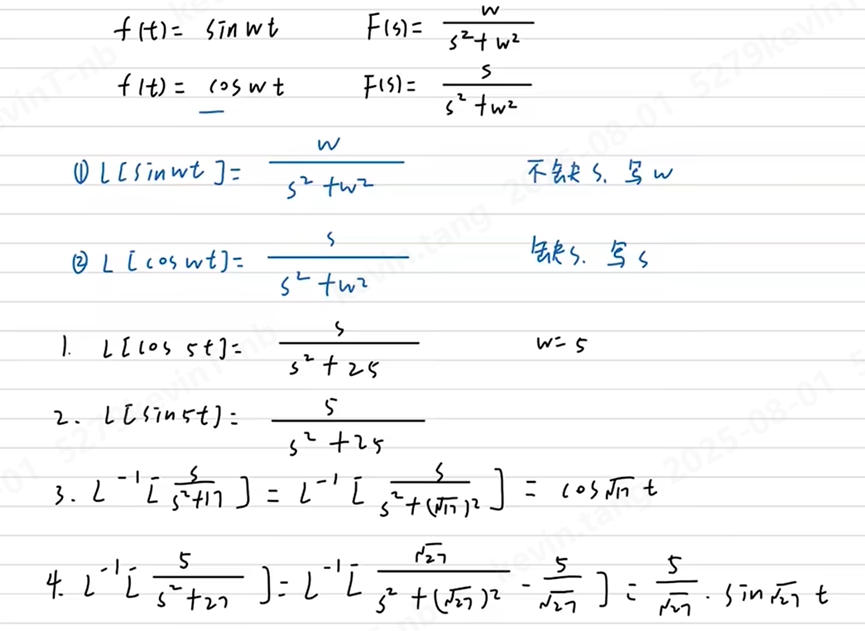 f(t) = sin wt F(s) = w / (s² + w²)
f(t) = cos wt F(s) = s / (s² + w²)
① L[sin wt] = w / (s² + w²) 不缺s. 写w
② L[cos wt] = s / (s² + w²) 缺s. 写s
1. L[cos 5t] = s / (s² + 25) w = 5
2. L[sin 5t] = 5 / (s² + 25)
3. L⁻¹[s / (s² + 17)] = L⁻¹[s / (s² + (√17)²)] = cos √17 t
4. L⁻¹[5 / (s² + 27)] = L⁻¹[√27 / (s² + (√27)²) - 5 / √27] = 5 / √27 · sin √27 t